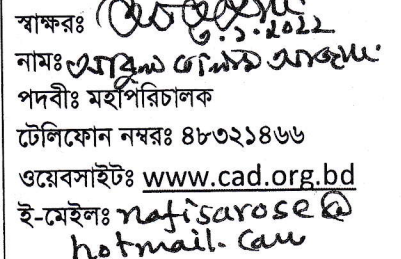 স্বাক্ষরঃ
৩.১.২০২২
নামঃ আবুল
পদবীঃ মহাপরিচালক
টেলিফোন নম্বরঃ ৪৮৩২১৪৬৬
ওয়েবসাইটঃ www.cad.org.bd
ই-মেইলঃ nafisarose@
hotmail.com